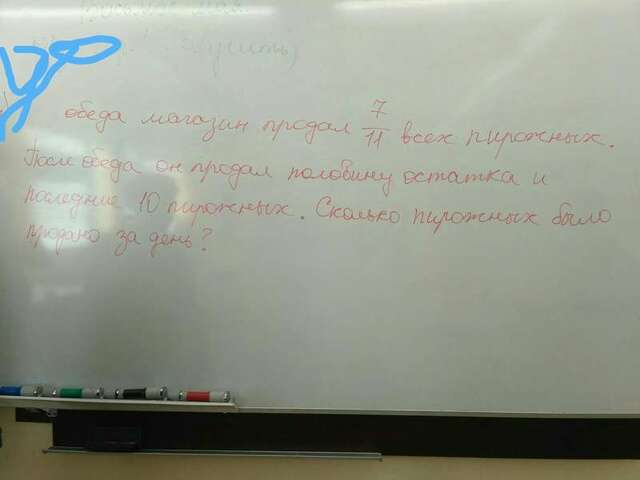 обеда магазин продал 7/11 всех пирожных.
После обеда он продал половину остатка и
последние 10 пирожных. Сколько пирожных было
продано за день?